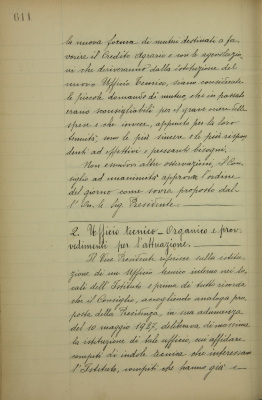 611
la nuova forma di mutui destinati a fa-
vorire il Credito Agrario e con le agevolazio-
ni che deriveranno dalla istituzione del
nuovo Ufficio Tecnico, siano considerate
le piccole domande di mutuo, che in passato
erano sconsigliabili per il grave onere delle
spese e che invece, appunto per la loro
tenuità, sono le più sincere e le più rispon-
denti ad effettivi e pressanti bisogni.
Non essendovi altre osservazioni, il Con-
siglio ad unanimità approva l'ordine
del giorno come sovra proposto dal-
l'On. le Sig. Presidente.
2. Ufficio tecnico - Organico e prov-
vedimenti per l'attuazione.
Il Vice Presidente riferisce sulla istitu-
zione di un Ufficio tecnico interno nei lo-
cali dell'Istituto e prima di tutto ricorda
che il Consiglio, accogliendo analoga pro-
posta della Presidenza, in sua adunanza
del 10 maggio 1927, deliberava di massima
la istituzione di tale ufficio, cui affidare
compiti di indole tecnica che interessano
l'Istituto, compiti che hanno già e